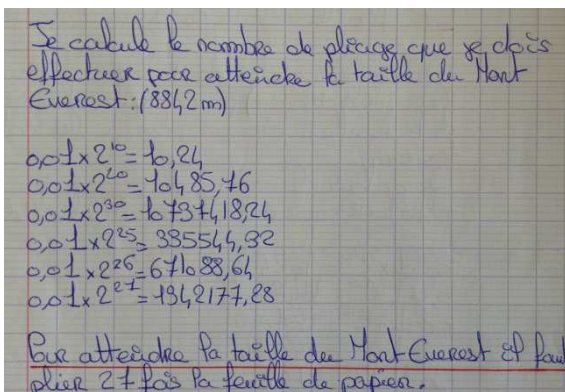 Je calcule le nombre de pliage que je dois
effectuer pour atteindre la taille du Mont
Everest : (8842 m)
0,01 x 2¹⁰ = 10,24
0,01 x 2²⁰ = 10485,76
0,01 x 2³⁰ = 10737418,24
0,01 x 2²⁵ = 335544,32
0,01 x 2²⁶ = 671088,64
0,01 x 2²⁷ = 1342177,28
Pour atteindre la taille du Mont Everest il faut
plier 27 fois la feuille de papier.